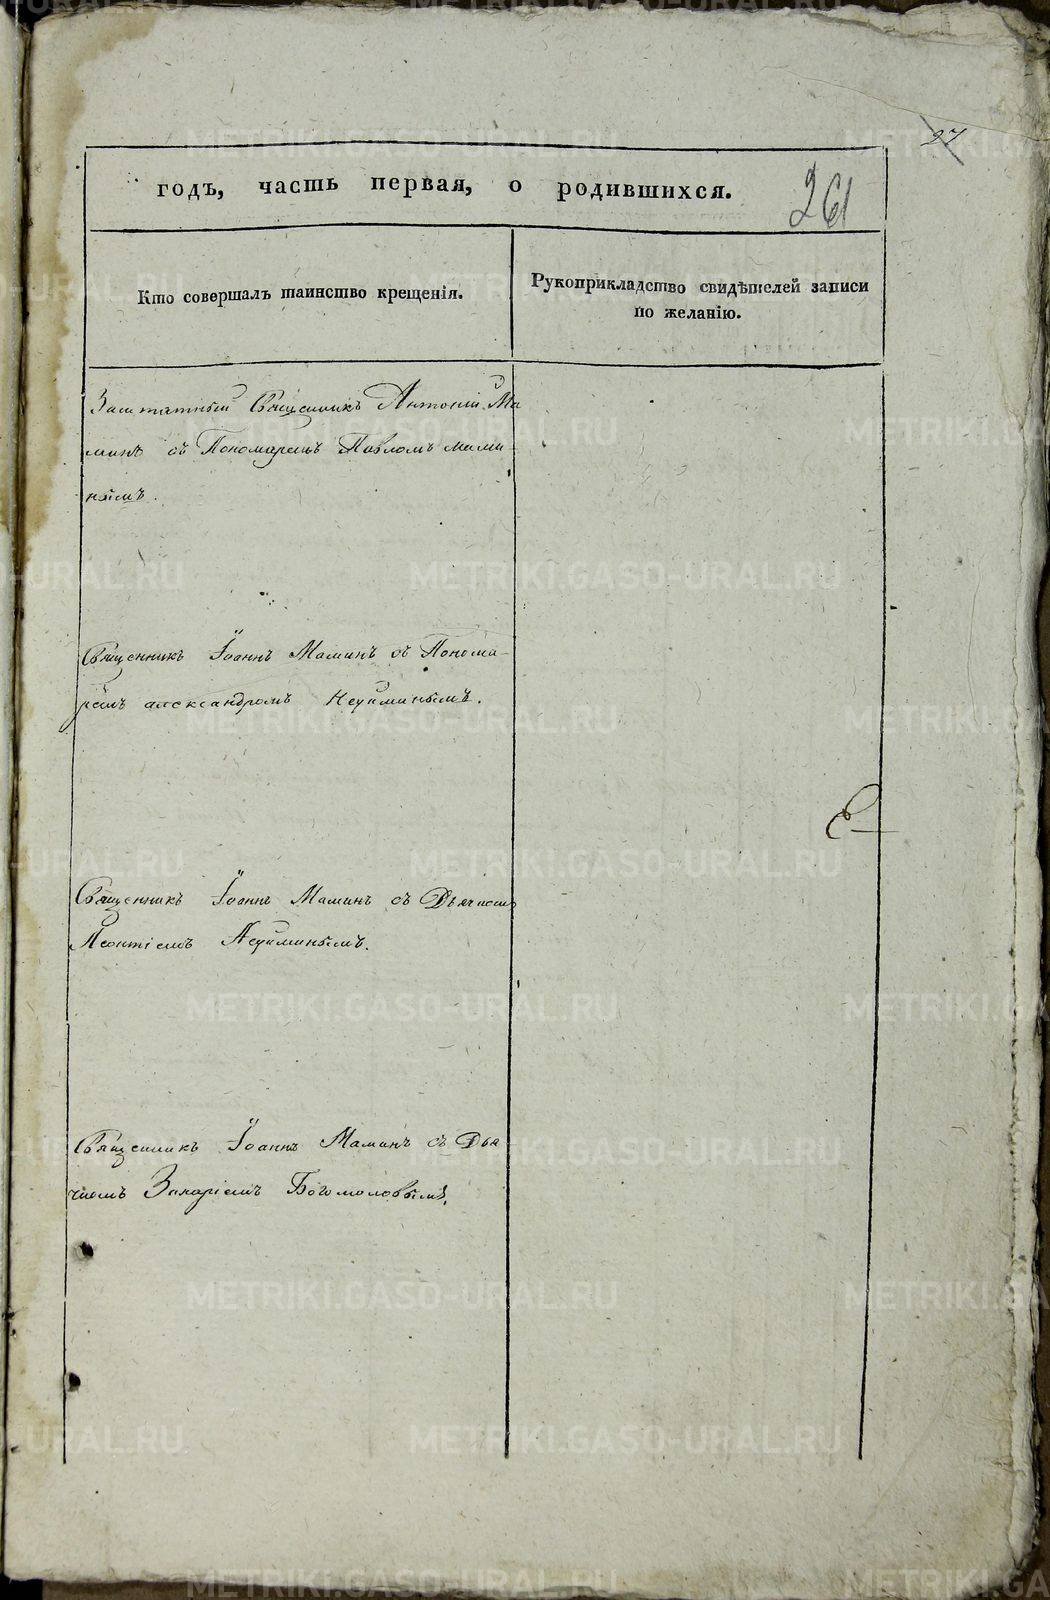 27
годъ, часть первая, о родившихся.
261
Кто совершалъ таинство крещенія.
Рукоприкладство свидѣтелей записи
по желанію.
Заштатный Священникъ Антоній Ма
минъ съ Пономаремъ Павломъ мами
нымъ.
Священникъ Іоаннъ Маминъ съ Понома-
ремъ александромъ Неуйминымъ.
Священникъ Іоаннъ Маминъ съ Дьячкомъ
Леонтіемъ Неуйминымъ.
Священникъ Іоаннъ Маминъ съ Дья
чкомъ Захаріемъ Богомоловымъ.
METRIKI.GASO-URAL.RU